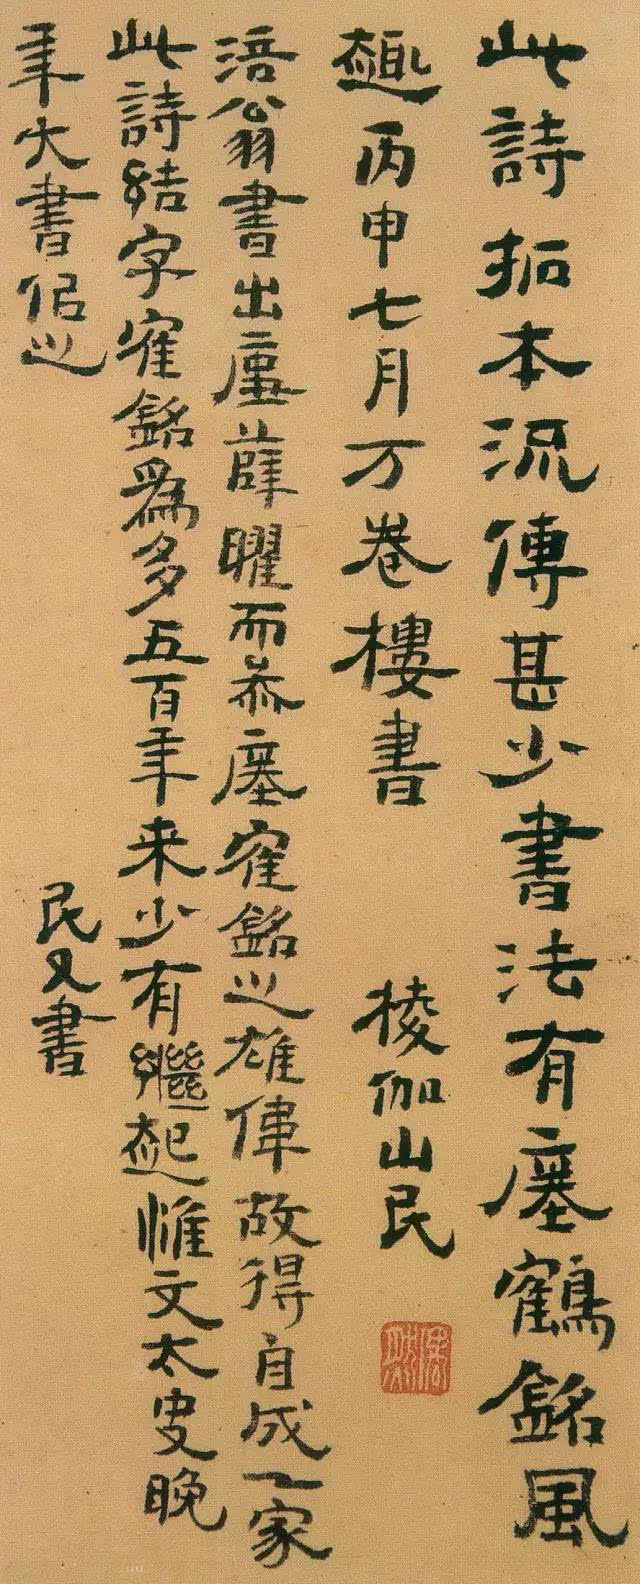 此詩拓本流傳甚少書法有瘞鶴銘風
趣丙申七月万卷樓書
棱伽山民
涪翁書出廛薛曜而叅瘞隺銘之雄偉故得自成一家
此詩結字隺銘為多五百年来少有繼起惟文太史晚
年大書佀之
民又書